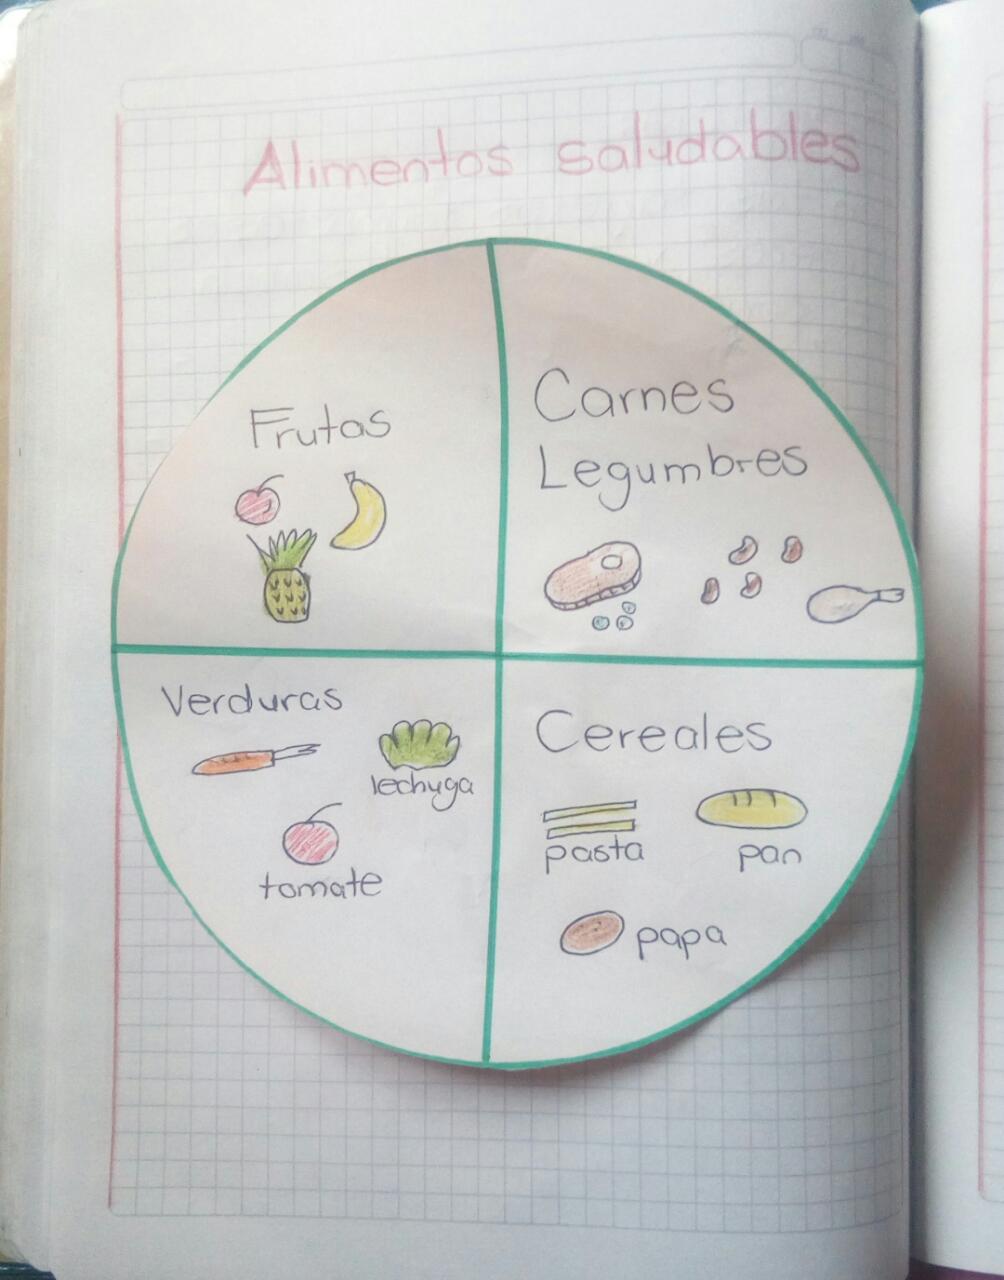 Alimentos saludables
Frutas
Carnes
Legumbres
Verduras
lechuga
tomate
Cereales
pasta
pan
papa